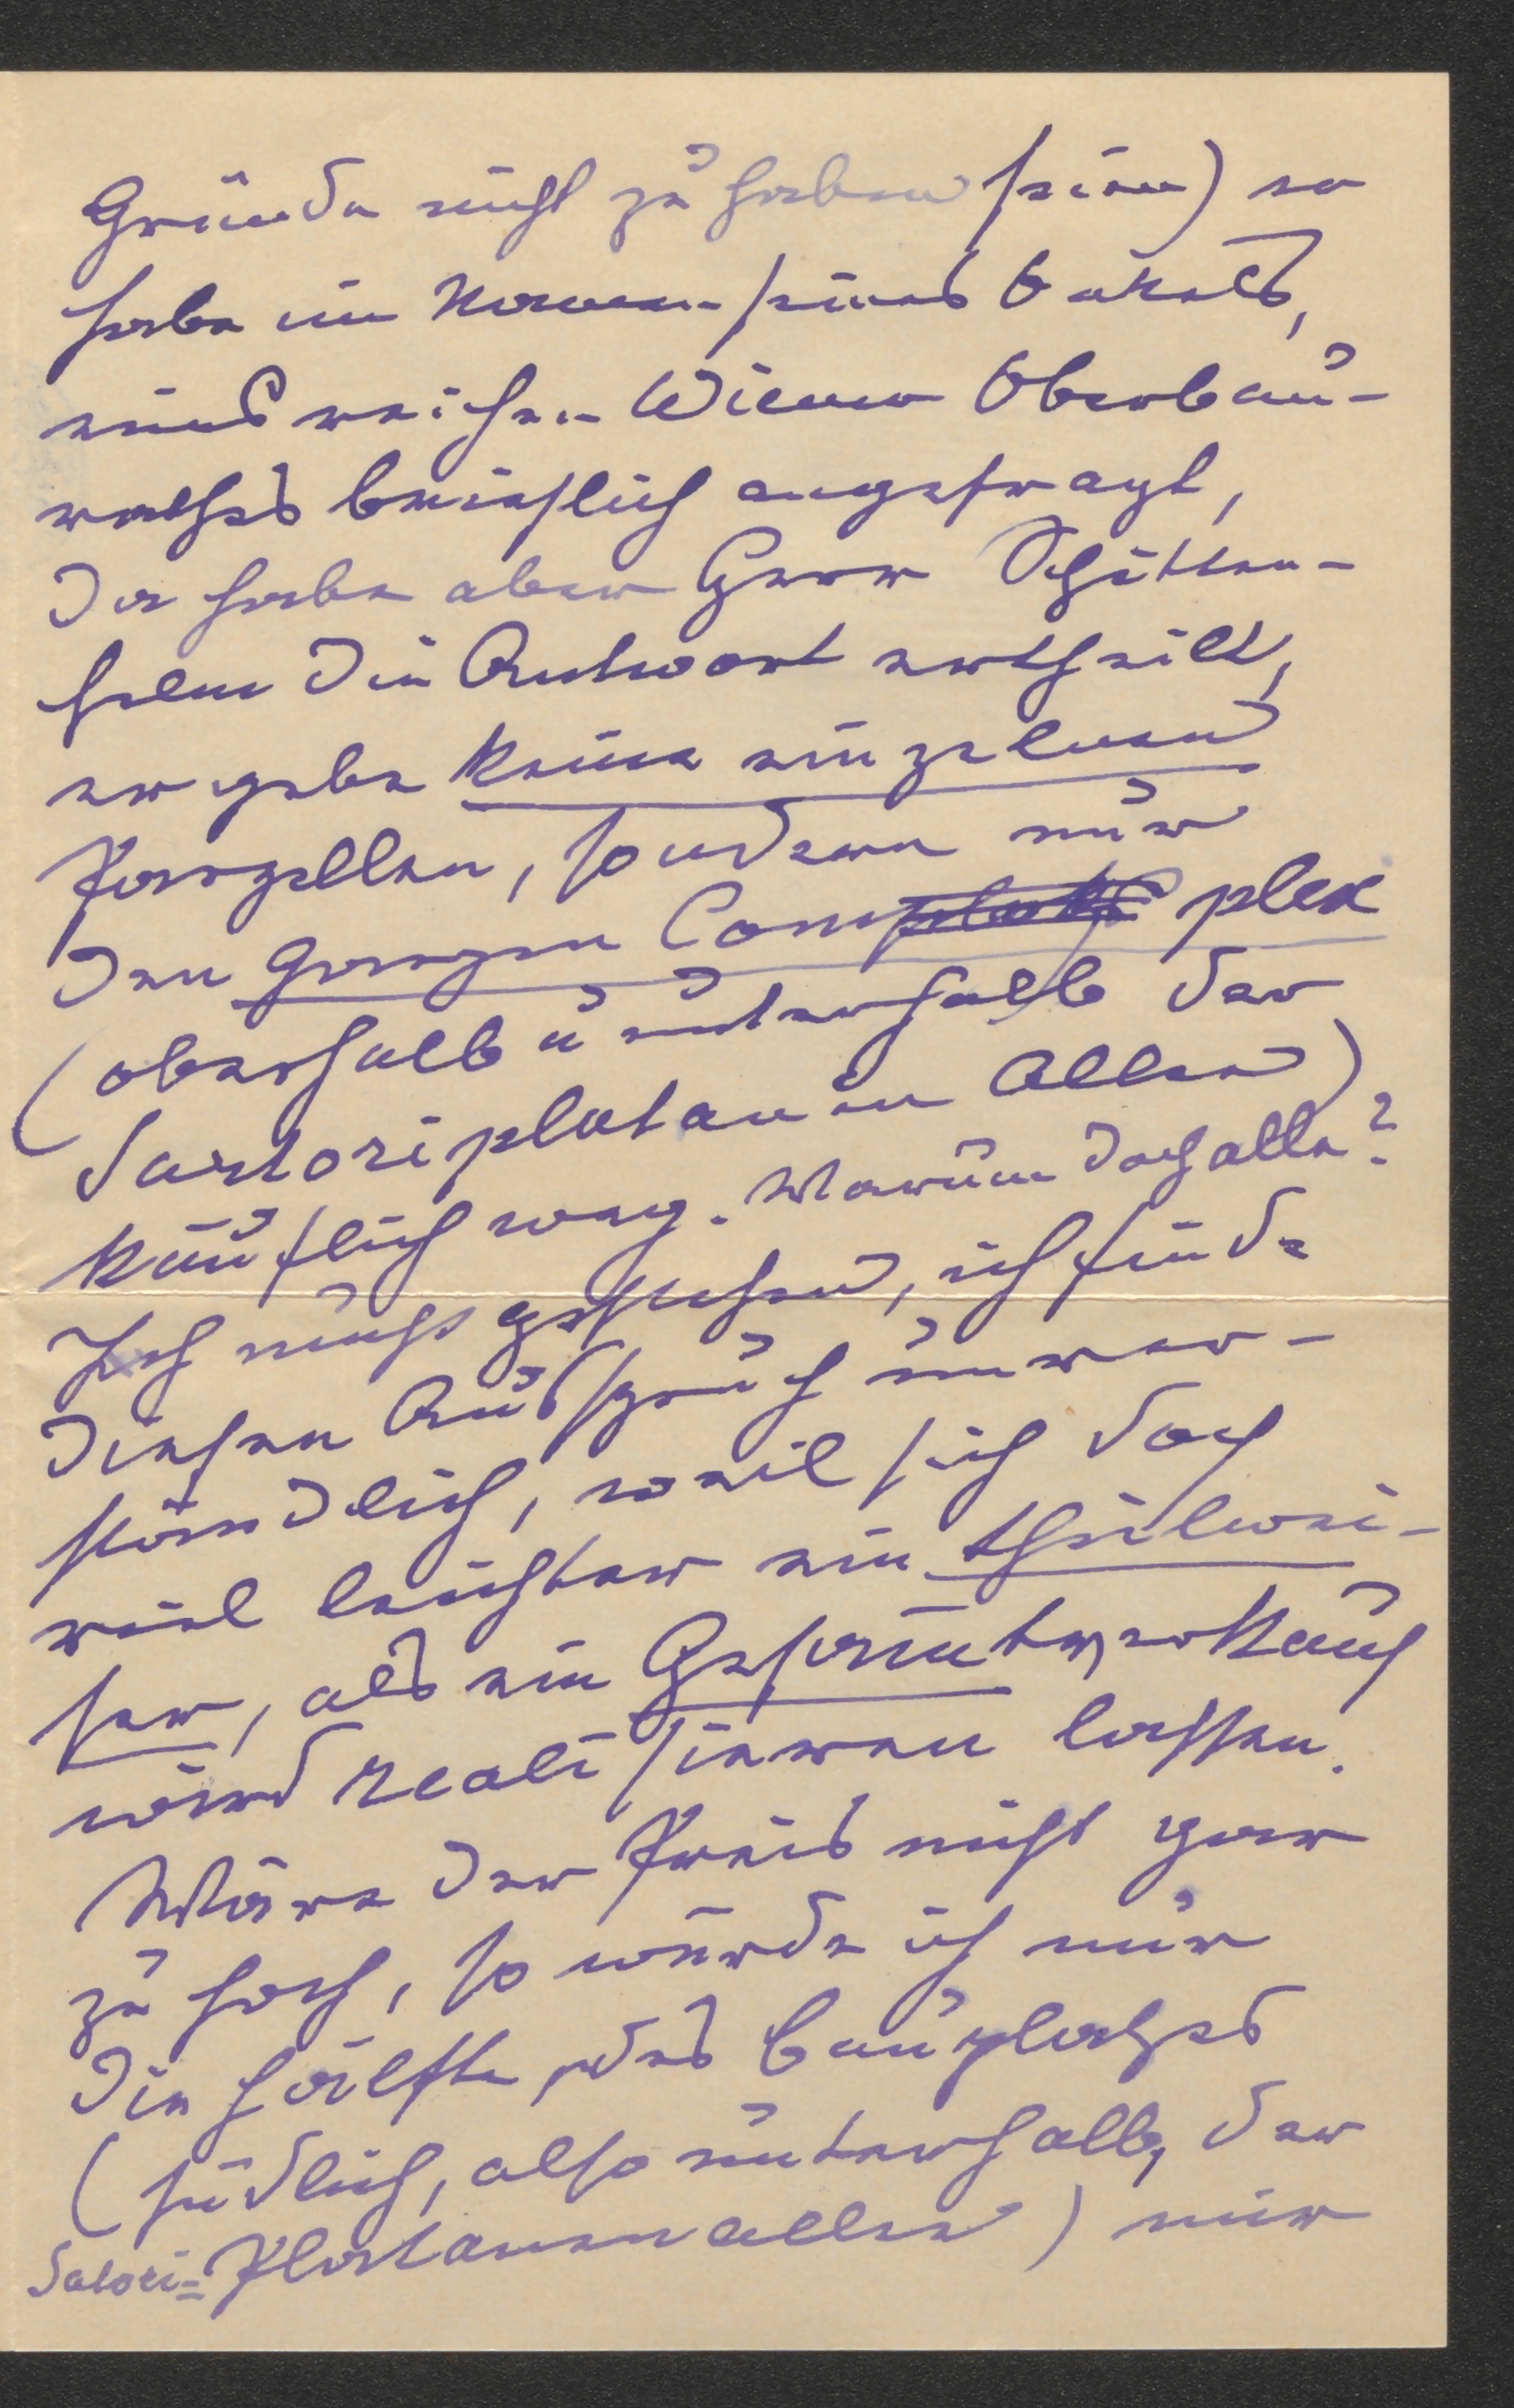 Gründe nicht zu haben seien) er
habe im Namen seines Onkels,
eines reichen Wiener Oberbau-
rathes brieflich angefragt,
da habe aber Herr Schitten-
helm die Antwort ertheilt,
er gebe keine einzelnen
Parzellen, sondern nur
den ganzen Complex
(oberhalb u unterhalb der
Sartoriplatanen Allee)
käuflich weg. Warum doch alle?
Ich muß gestehen, ich finde
diesen Ausspruch unver-
ständlich, weil sich doch
viel leichter ein theilwei-
ser, als ein Gesamtverkauf
wird realisieren lassen.
Wäre der Preis nicht gar
zu hoch, so würde ich mir
die Hälfte des Bauplatzes
(südlich, also unterhalb, der
Satori=Platanenallee) mir